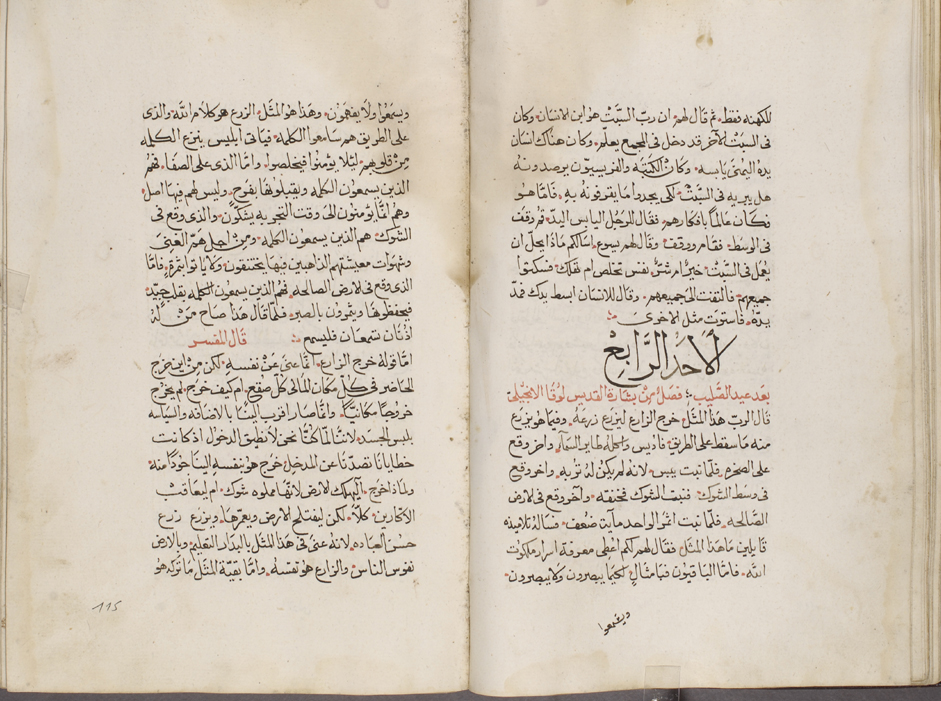 للكهنه فقط. ثم قال لهم ان ربّ السبت هو ابن الانسان. وكان
في السبت الآخر قد دخل في المجمع يعلّم. وكان هناك انسان
يده اليمنى يابسه. وكان الكتبه والفريسيون يرصدونه
هل يبريه في السبت. لكي يجدوا ما يقرفونه به. فامّا هو
فكان عالماً بافكارهم. فقال للرجل اليابس اليد. قم وقف
في الوسط. فقام ووقف. وقال لهم يسوع اسالكم ماذا يحلّ ان
يعمل في السبت. خيرٌ ام شرٌّ. نفس تخلص ام تهلك. فسكتوا
جميعهم. فالتفت الى جميعهم. وقال للانسان ابسط يدك فمدّ
يده. فاستوت مثل الاخرى
الاحد الرابع
بعد عيد الصليب فصلٌ من بشارة القديس لوقا الانجيلي
قال الرب هذا المثل خرج الزارع ليزرع زرعهُ. وفيما هو يزرع
منه ما سقط على الطريق. فاديس واكله طاير السمآ. واخر وقع
على الصخره. فلمّا نبت يبس. لانه لم يكن له تربه. واخر وقع
في وسط الشوك. فنبت الشوك فخنقه. وآخر وقع في الارض
الصالحه. فلمّا نبت اثمر الواحد مآية ضعف. فساله تلاميذه
قايلين ما هذا المثل. فقال لهم لكم اعطى معرفة اسرار ملكوت
الله. فامّا الباقيون فبامثالٍ لكيما يبصرون ولا يبصرون.
ويسمعوا
ويسمعوا ولا يفهمون. وهذا هو المثل. الزرع هو كلام الله. والذي
على الطريق هم سامعوا الكلمه. فياتي ابليس ينزع الكلمه
من قلوبهم. ليلا يومنوا فيخلصوا. وامّا الذي على الصفا. فهم
الذين يسمعون الكلمه ويقبلوها بفرح. وليس لهم فيها اصل.
وهم انّما يؤمنون الى وقت التجربه يشكّون. والذي وقع في
الشوك. هم الذين يسمعون الكلمه. ومن اجل همّ الغنى
وشهوات معيشتهم الذاهبين فيها يختنقون. ولا ياتوا بثمرةٍ. فامّا
الذي وقع في الارض الصالحه. فهم الذين يسمعون الكلمه بقلبٍ جيّد.
فيحفظوها ويثمرون بالصبر. فلمّا قال هذا صاح من لهُ
اذنان تسمعان فليسمع قال المفسر
امّا قوله خرج الزارع. انّما عنى عن نفسه. لكن من اين خرج
الحاضر في كلّ مكان المالى كلّ صقع. ام كيف خرج. لم يخرج
خروجاً مكانيّاً. وانّما صار اقرب الينا بالاضافه والسياسه
بلبس الجسد. لاننا لما كنّا نحن لا نطيق الدخول اذ كانت
خطايانا تصدّنا عن المدخل خرج هو بنفسه الينا جوداً منه.
ولماذا خرج. آليهلك الارض لانها مملوه شوك. ام ليعاقب
الاكّارين. كلّا. لكن ليفتلح الارض ويعمّرها. ويزرع زرع
حسن العباده. لانه عنى في هذا المثل بالبذار التعليم. وبالارض
نفوس الناس. والزارع هو نفسه. وامّا بقيّة المثل ما تركه هو
115